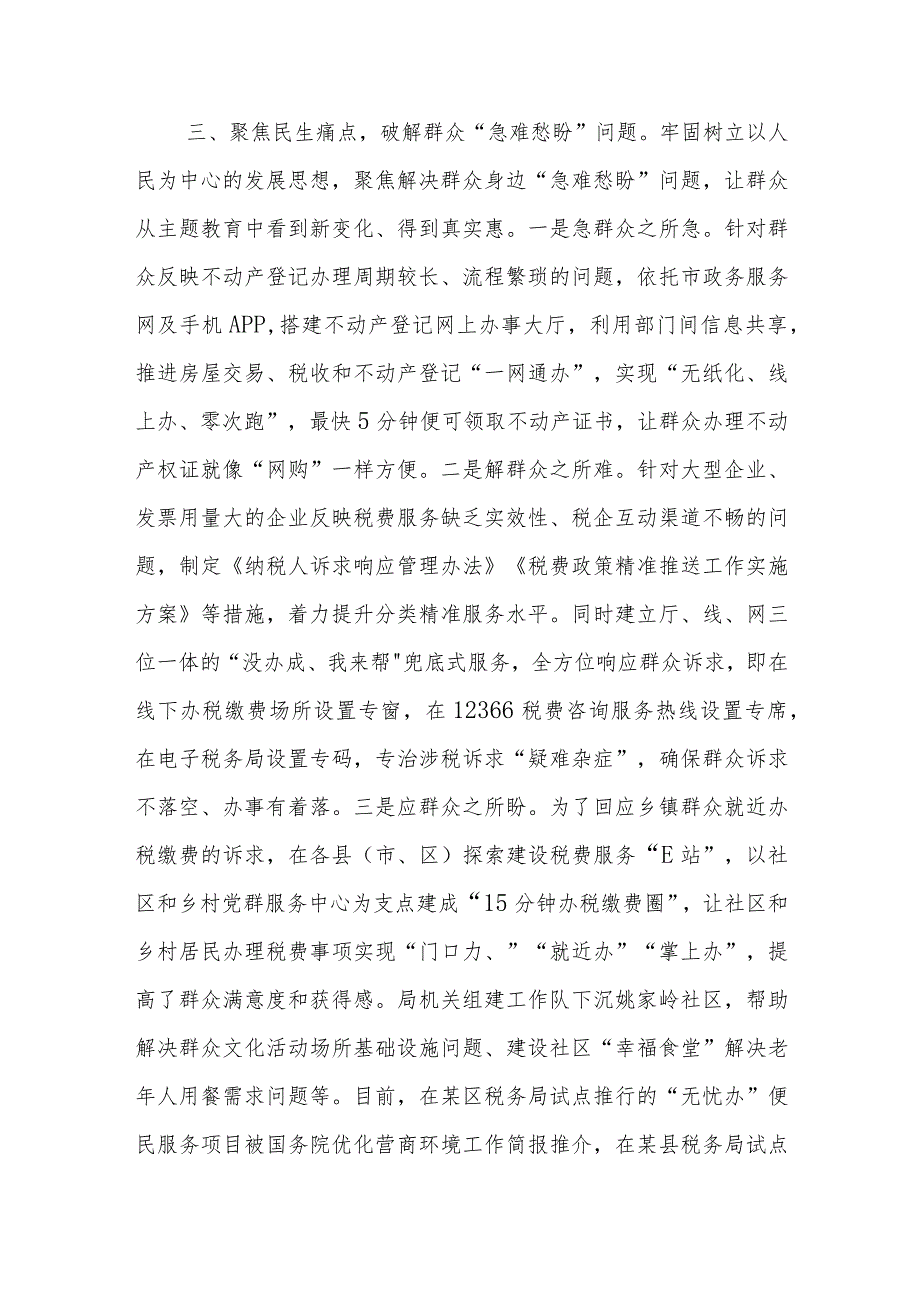 三、聚焦民生痛点，破解群众“急难愁盼”问题。牢固树立以人
民为中心的发展思想，聚焦解决群众身边“急难愁盼”问题，让群众
从主题教育中看到新变化、得到真实惠。一是急群众之所急。针对群
众反映不动产登记办理周期较长、流程繁琐的问题，依托市政务服务
网及手机 APP,搭建不动产登记网上办事大厅，利用部门间信息共享，
推进房屋交易、税收和不动产登记“一网通办”，实现“无纸化、线
上办、零次跑”，最快 5 分钟便可领取不动产证书，让群众办理不动
产权证就像“网购”一样方便。二是解群众之所难。针对大型企业、
发票用量大的企业反映税费服务缺乏实效性、税企互动渠道不畅的问
题，制定《纳税人诉求响应管理办法》《税费政策精准推送工作实施
方案》等措施，着力提升分类精准服务水平。同时建立厅、线、网三
位一体的“没办成、我来帮"兜底式服务，全方位响应群众诉求，即在
线下办税缴费场所设置专窗，在 12366 税费咨询服务热线设置专席，
在电子税务局设置专码，专治涉税诉求“疑难杂症”，确保群众诉求
不落空、办事有着落。三是应群众之所盼。为了回应乡镇群众就近办
税缴费的诉求，在各县（市、区）探索建设税费服务“E 站”，以社
区和乡村党群服务中心为支点建成“15 分钟办税缴费圈”，让社区和
乡村居民办理税费事项实现“门口力、”“就近办”“掌上办”，提
高了群众满意度和获得感。局机关组建工作队下沉姚家岭社区，帮助
解决群众文化活动场所基础设施问题、建设社区“幸福食堂”解决老
年人用餐需求问题等。目前，在某区税务局试点推行的“无忧办”便
民服务项目被国务院优化营商环境工作简报推介，在某县税务局试点